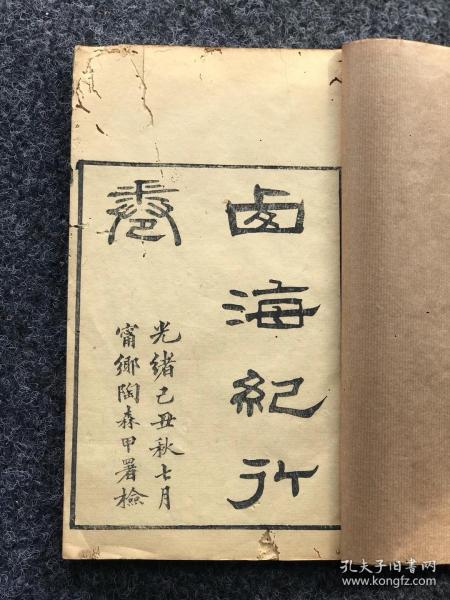 西海紀行
卷
光緒己丑秋七月
甯鄉陶森甲署檢
孔夫子旧书网
www.kongfz.com